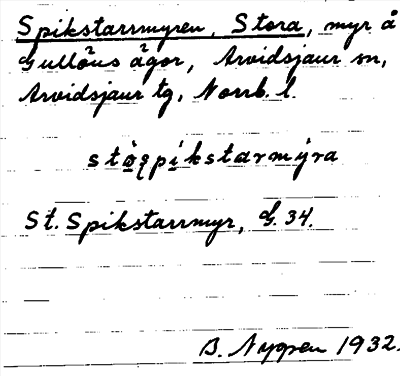 Spikstarrmyren, Stora, myr å
Gullöns ägor, Arvidsjaur sn,
Arvidsjaur tg, Norrb. l.
St. Spikstarrmyr, G. 34.
B. Nygren 1932.